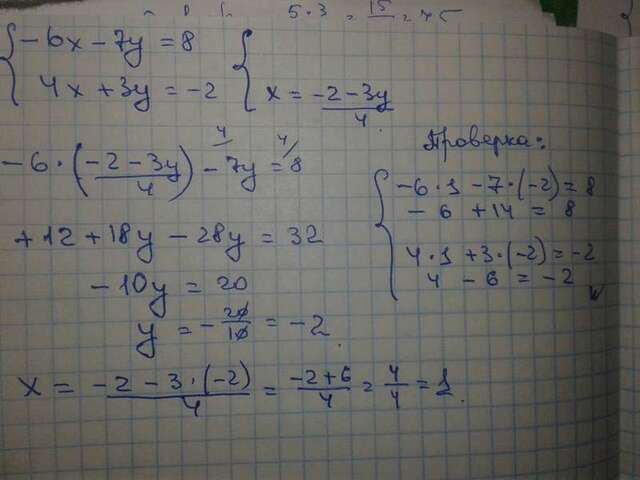 5·3 = 15/
{ -6x - 7y = 8
4x + 3y = -2 { x = (-2 - 3y)/4
-6·((-2 - 3y)/4) - 7y /4 = 8 /4
+12 + 18y - 28y = 32
-10y = 20
y = -20/10 = -2
x = (-2 - 3·(-2))/4 = (-2 + 6)/4 = 4/4 = 1
Проверка:
{ -6·1 - 7·(-2) = 8
-6 + 14 = 8
4·1 + 3·(-2) = -2
4 - 6 = -2